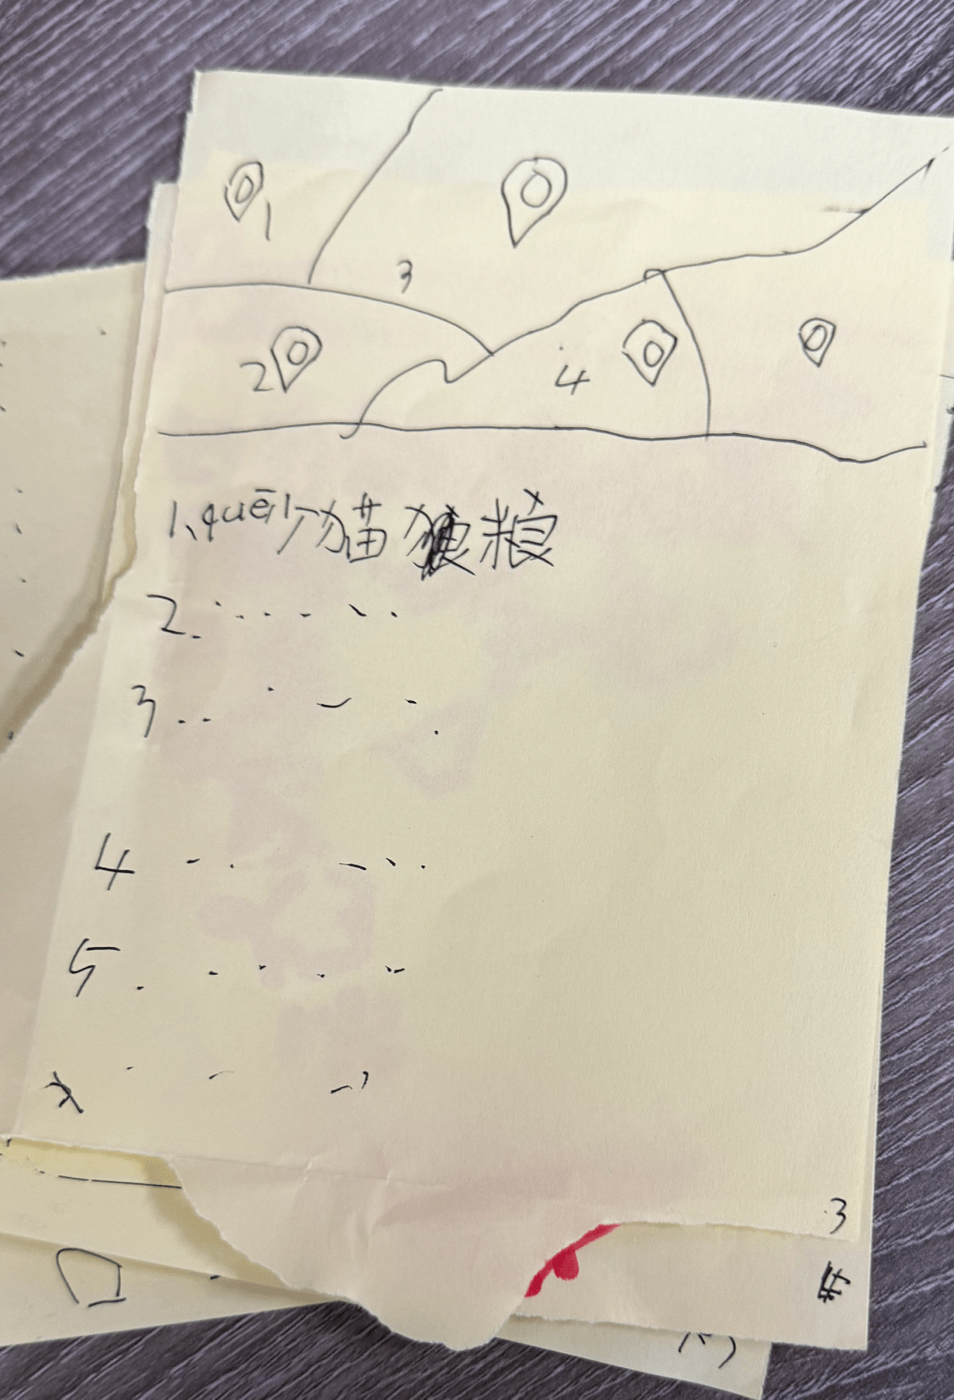 1
3
2
4
1、quē少猫粮
2.
3
4
5
3
4